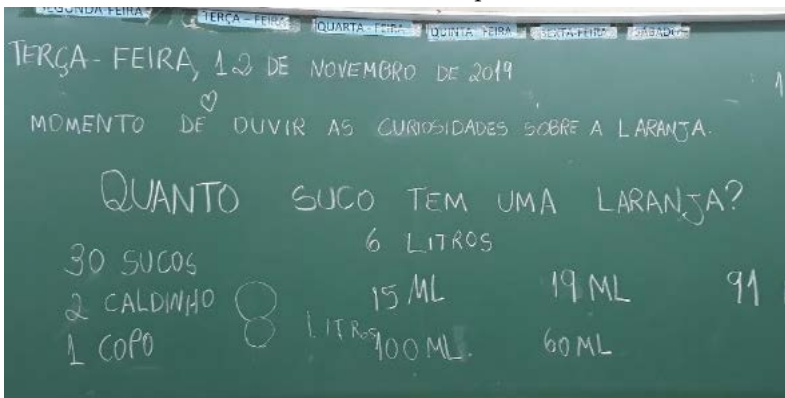 SEGUNDA FEIRA TERÇA - FEIRA QUARTA - FEIRA QUINTA FEIRA SEXTA-FEIRA SÁBADO
TERÇA - FEIRA, 12 DE NOVEMBRO DE 2019
MOMENTO DE OUVIR AS CURIOSIDADES SOBRE A LARANJA.
QUANTO SUCO TEM UMA LARANJA?
6 LITROS
30 SUCOS
2 CALDINHO 8 LITROS 15 ML 19 ML 91
1 COPO 100 ML. 60 ML